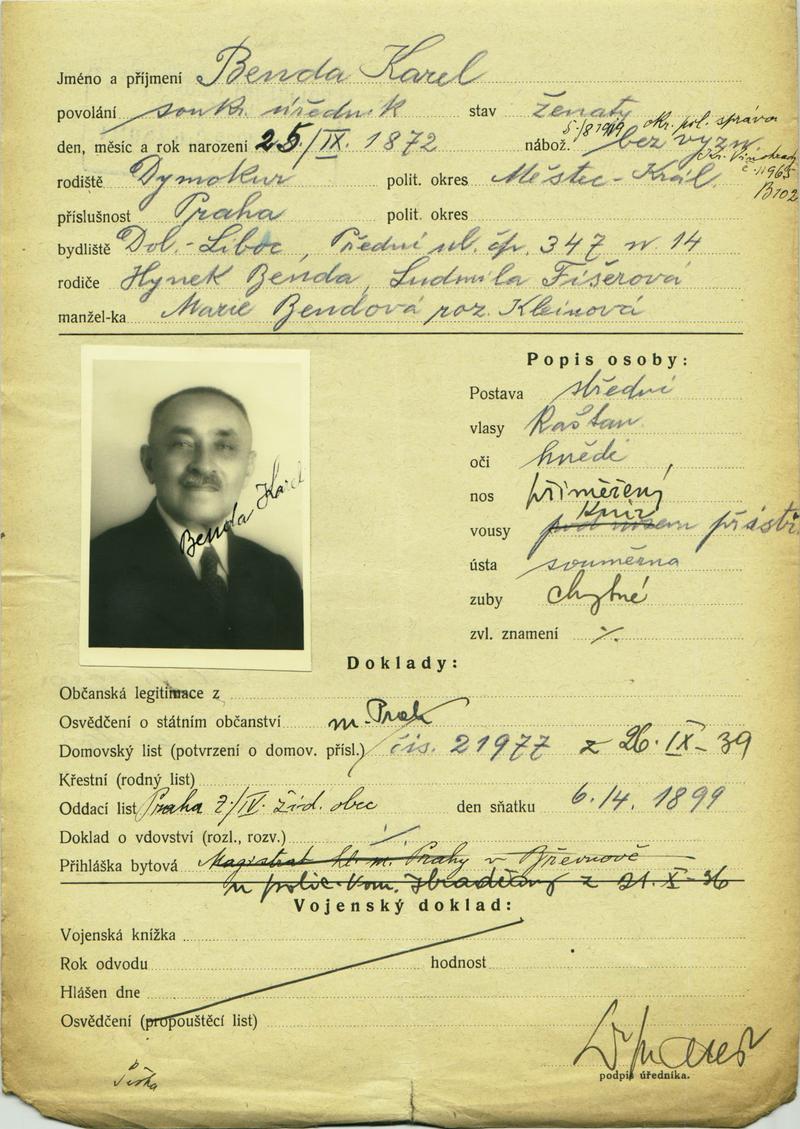 Jméno a příjmení Benda Karel
povolání soukr. úředník stav ženatý
5./8 1919 okr. pol. správa
den, měsíc a rok narození 25/IX. 1872 nábož. bez vyzn.
Kr. Vinohrady
rodiště Dymokur polit. okres Městec-Král.
č. 11965
B102
příslušnost Praha polit. okres
bydliště Dol.-Liboc, Přední ul. čp. 347 n 14
rodiče Hynek Benda, Ludmila Fišerová
manžel-ka Marie Bendová roz. Kleinová
Popis osoby:
Postava střední
vlasy kaštan.
oči hnědé
nos přiměřený
knír
vousy pod nosem
ústa souměrná
zuby chybné
zvl. znamení ⁒
Benda Karel
Doklady:
Občanská legitimace z
Osvědčení o státním občanství m. Prah
Domovský list (potvrzení o domov. přísl.) čís. 21977 z 26. IX-39
Křestní (rodný list)
Oddací list Praha 2/IV. žid. obec den sňatku 6./4. 1899
Doklad o vdovství (rozl., rozv.)
Přihláška bytová Magistrát hl. m. Prahy v Břevnově
u polic. kom. Hradčany z 21. X-36
Vojenský doklad:
Vojenská knížka
Rok odvodu hodnost
Hlášen dne
Osvědčení (propouštěcí list)
podpis úředníka.